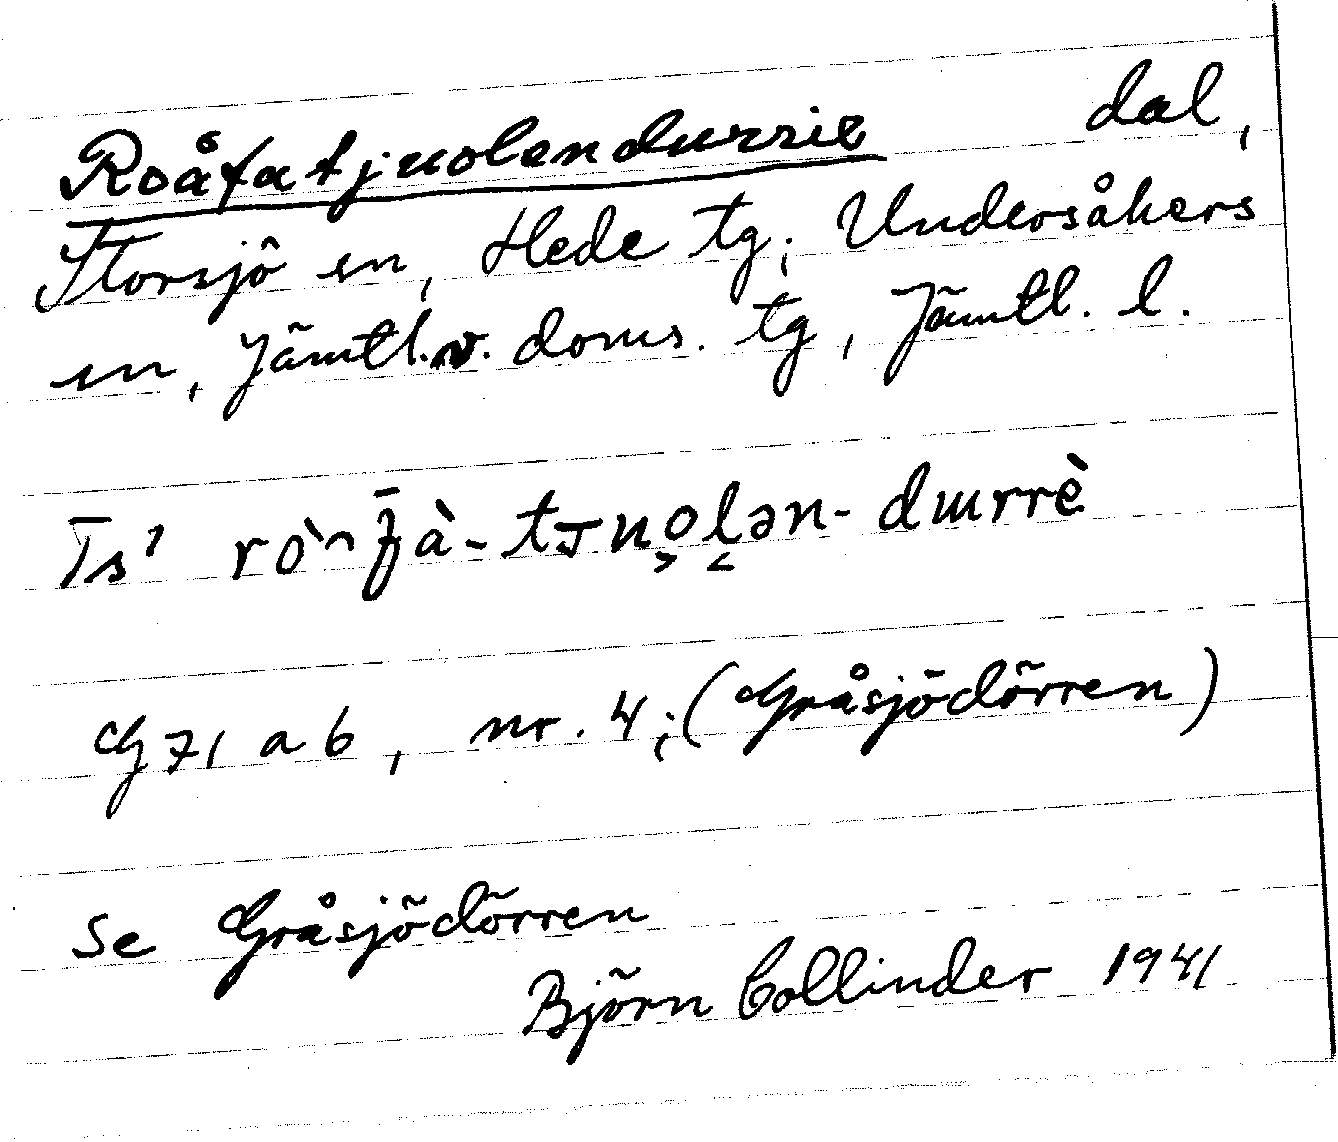 Roåfatjuolendurrie dal,
Storsjö sn, Hede tg; Undersåkers
sn, Jämtl. v. doms. tg, Jämtl. l.
rò⌢f̄à-tᴊuo̧l̬ən-dɯrrè
G 71 a b, nr. 4; (Gråsjödörren)
Se Gråsjödörren
Björn Collinder 1941